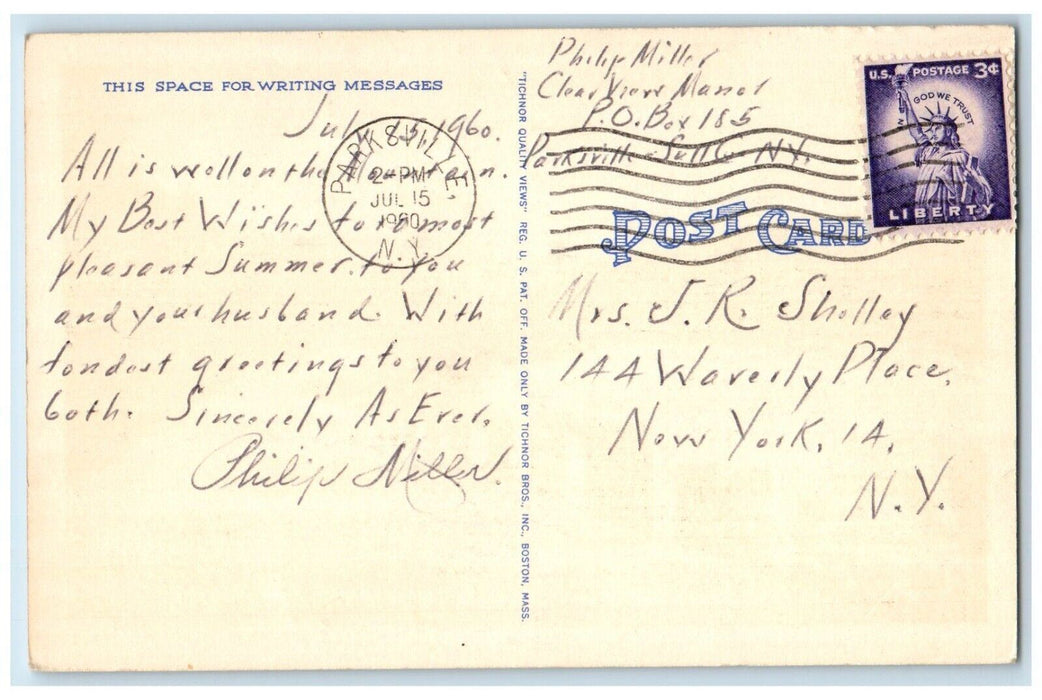 THIS SPACE FOR WRITING MESSAGES
July 15, 1960.
All is well on the mountain.
My Best Wishes to a most
pleasant Summer to you
and your husband. With
fondest greetings to you
both. Sincerely As Ever,
Philip Miller.
PARKSVILLE
2-PM
JUL 15
1960
N.Y.
"TICHNOR QUALITY VIEWS" REG. U. S. PAT. OFF. MADE ONLY BY TICHNOR BROS., INC., BOSTON, MASS.
Philip Miller
Clear View Manor
P.O. Box 185
Parksville Sull Co N.Y.
U.S. POSTAGE 3¢
IN GOD WE TRUST
LIBERTY
POST CARD
Mrs. J. R. Sholley
144 Waverly Place,
New York, 14,
N.Y.